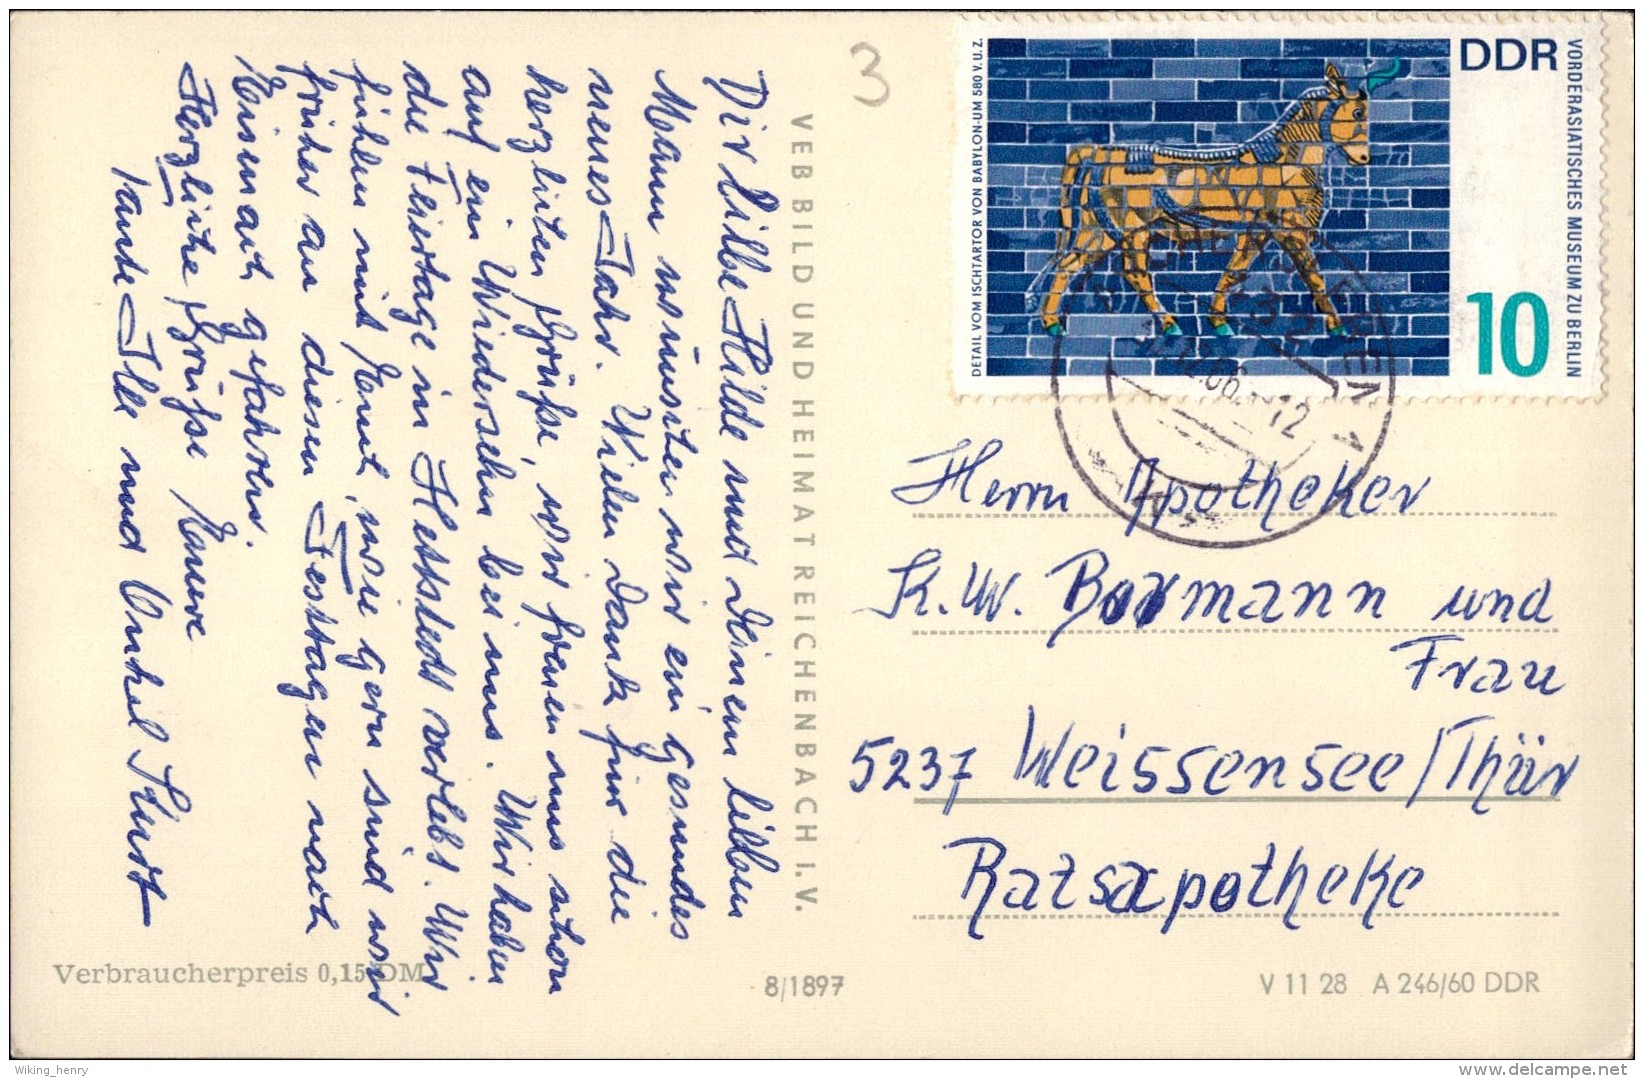 3
DDR
10
VORDERASIATISCHES MUSEUM ZU BERLIN
DETAIL VOM ISCHTARTOR VON BABYLON-UM 580 V. U. Z.
ASCHERSLEBEN 1
432
12.66
12
VEB BILD UND HEIMAT REICHENBACH I. V.
Dir liebe Hilde und deinem lieben
Mann wünschen wir ein gesundes
neues Jahr. Vielen Dank für die
herzlichen Grüße, wir freuen uns schon
auf ein Wiedersehn bei uns. Wir haben
die Feiertage in Hettstedt verlebt. Wir
fühlen mit Euch, wie gern sind wir
früher an diesen Festtagen nach
Eisenach gefahren.
Herzliche Grüße Eure
Tante Ille und Onkel Kurt
Herrn Apotheker
K. W. Bormann und
Frau
5237 Weissensee/Thür
Ratsapotheke
Verbraucherpreis 0,15 DM
8/1897
V 11 28 A 246/60 DDR
Wiking_henry
www.delcampe.net